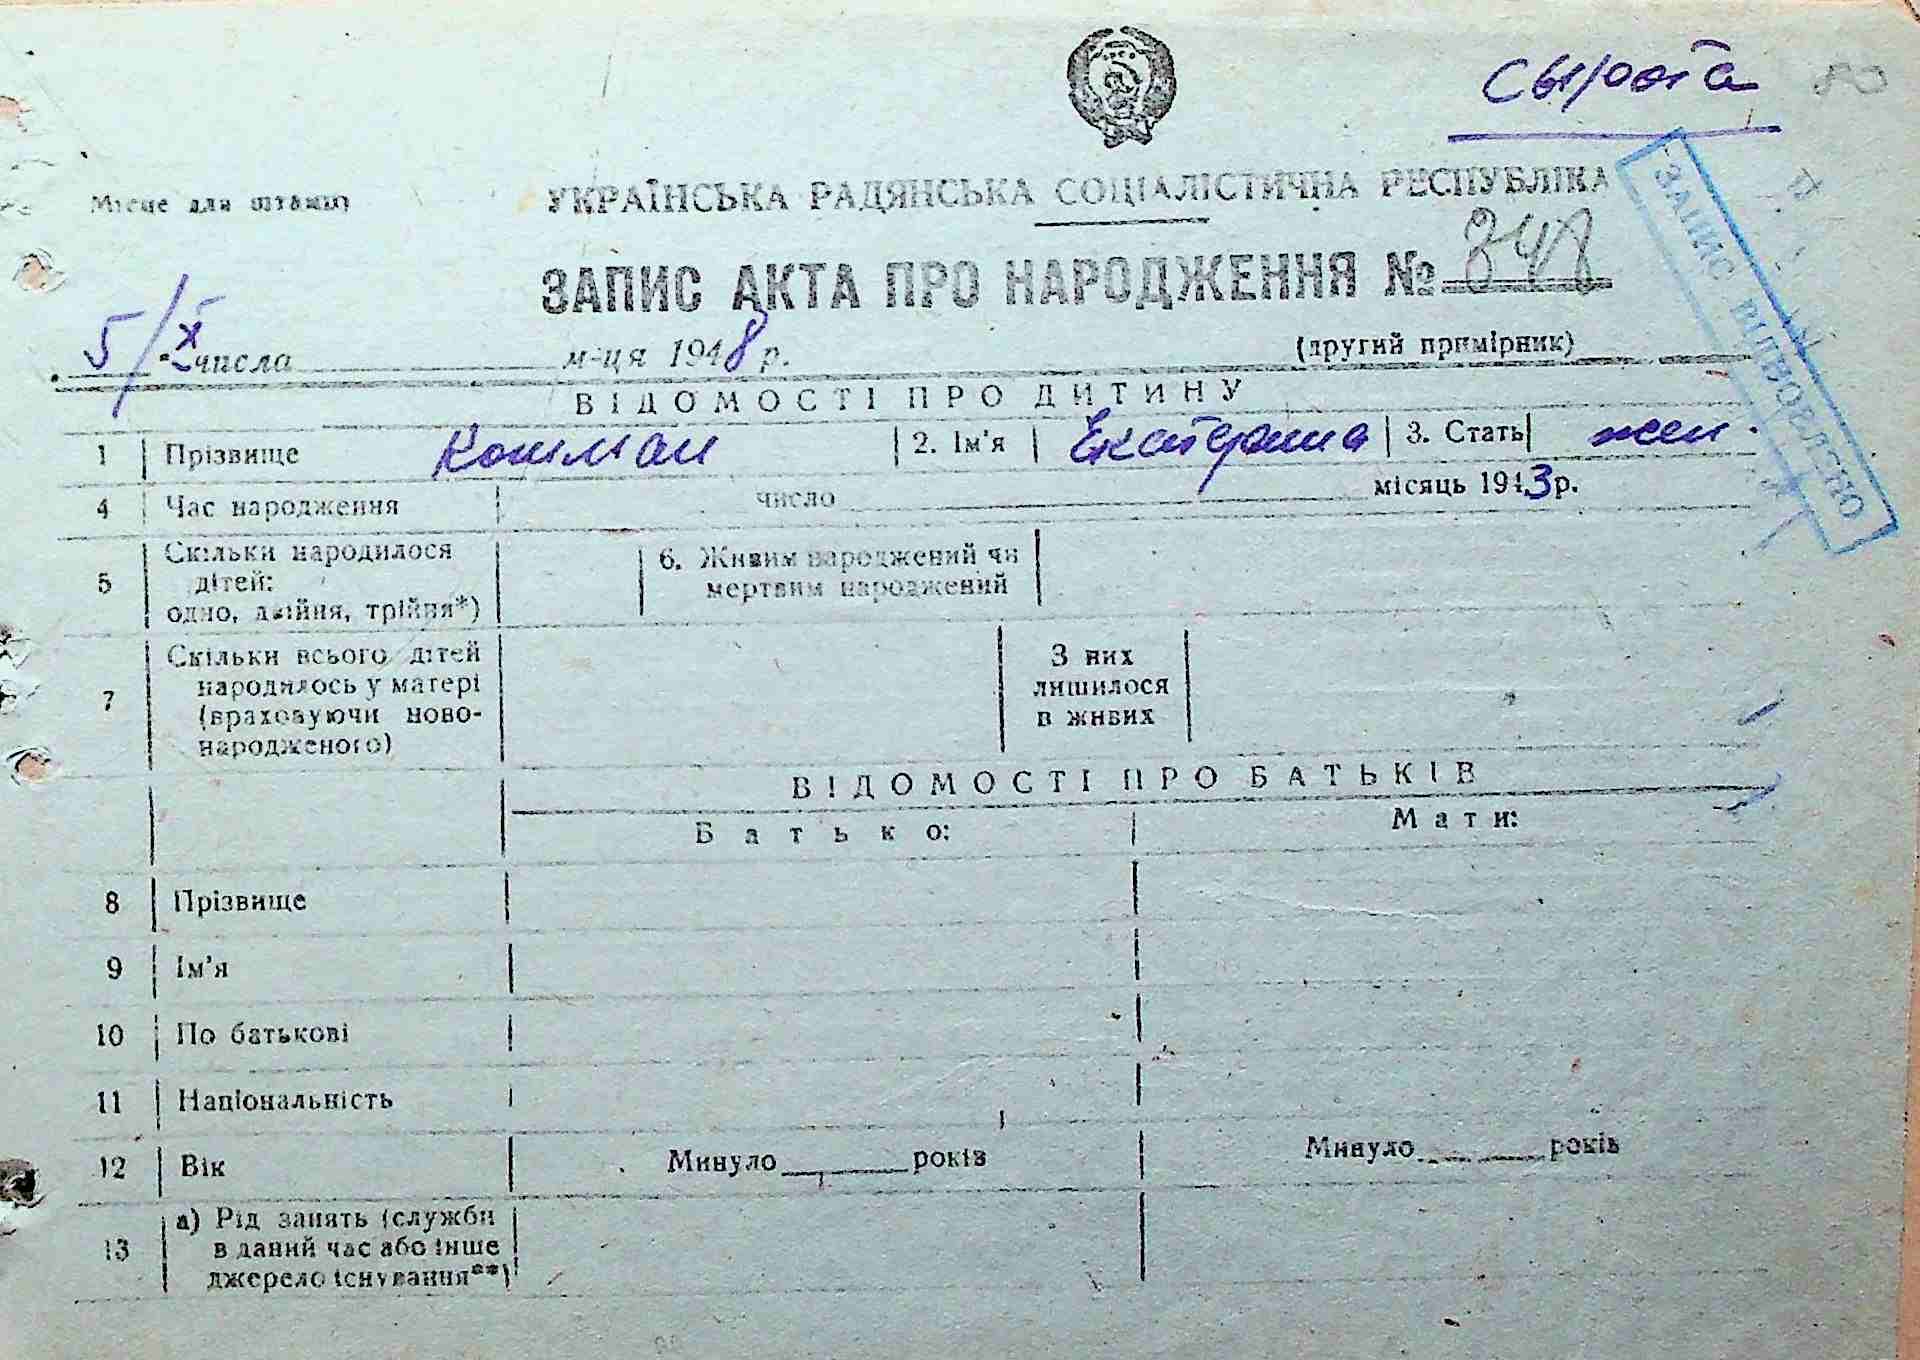 Сырота
Місце для штампу
УКРАЇНСЬКА РАДЯНСЬКА СОЦІАЛІСТИЧНА РЕСПУБЛІКА
ЗАПИС АКТА ПРО НАРОДЖЕННЯ № 348
ЗАПИС ВІДНОВЛЕНО
5/X числа м-ця 1948 р.
(другий примірник)
ВІДОМОСТІ ПРО ДИТИНУ
1 Прізвище Кошман 2. Ім'я Екатерина 3. Стать жен.
4 Час народження число місяць 1943 р.
5 Скільки народилося дітей: одно, двійня, трійня*) 6. Живим народжений чи мертвим народжений
7 Скільки всього дітей народилось у матері (враховуючи ново-народженого) З них лишилося в живих
ВІДОМОСТІ ПРО БАТЬКІВ
Батько: Мати:
8 Прізвище
9 Ім'я
10 По батькові
11 Національність
12 Вік Минуло років Минуло років
13 а) Рід занять (служби в даний час або інше джерело існування**)